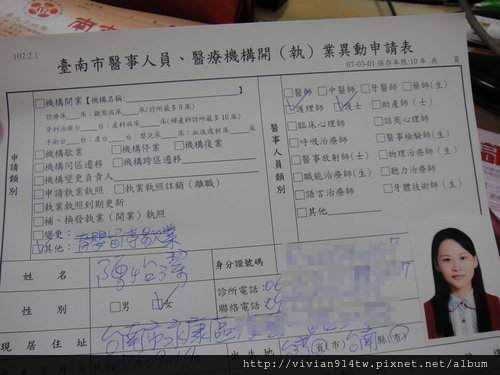 102.2.1
臺南市醫事人員、醫療機構開（執）業異動申請表
07-03-01 保存年限:10年 共 頁
申請類別
□機構開業【機構名稱: 】
診療床__床;觀察病床__床(診所最多9床)
牙科治療台__台;產科病床__床(婦產科診所最多10床)
手術台__台;產台__台;嬰兒床__床;血液透析床__床
□機構歇業 □機構停業 □機構復業
□機構同區遷移 □機構跨區遷移
□機構變更負責人
□申請執業執照 □執業執照註銷（離職）
□執業執照到期更新
□補、換發執業（開業）執照
□變更:
☑其他: 育嬰留停歇業
醫事人員類別
□醫師 □中醫師 □牙醫師 □藥師(生)
☑護理師 ☑護士 □助產師（士）
□臨床心理師 □諮商心理師
□呼吸治療師 □醫事檢驗師(生)
□醫事放射師(士) □物理治療師(生)
□職能治療師(生) □聽力治療師
□語言治療師 □牙體技術師（生）
□其他
姓名
身分證號碼 7
診所電話: 06
聯絡電話: 09
性別 □男 ☑女
現居住址 台南市永康區
出生地 省(市) 台南 縣(市)
http://vivian914tw.pixnet.net/album